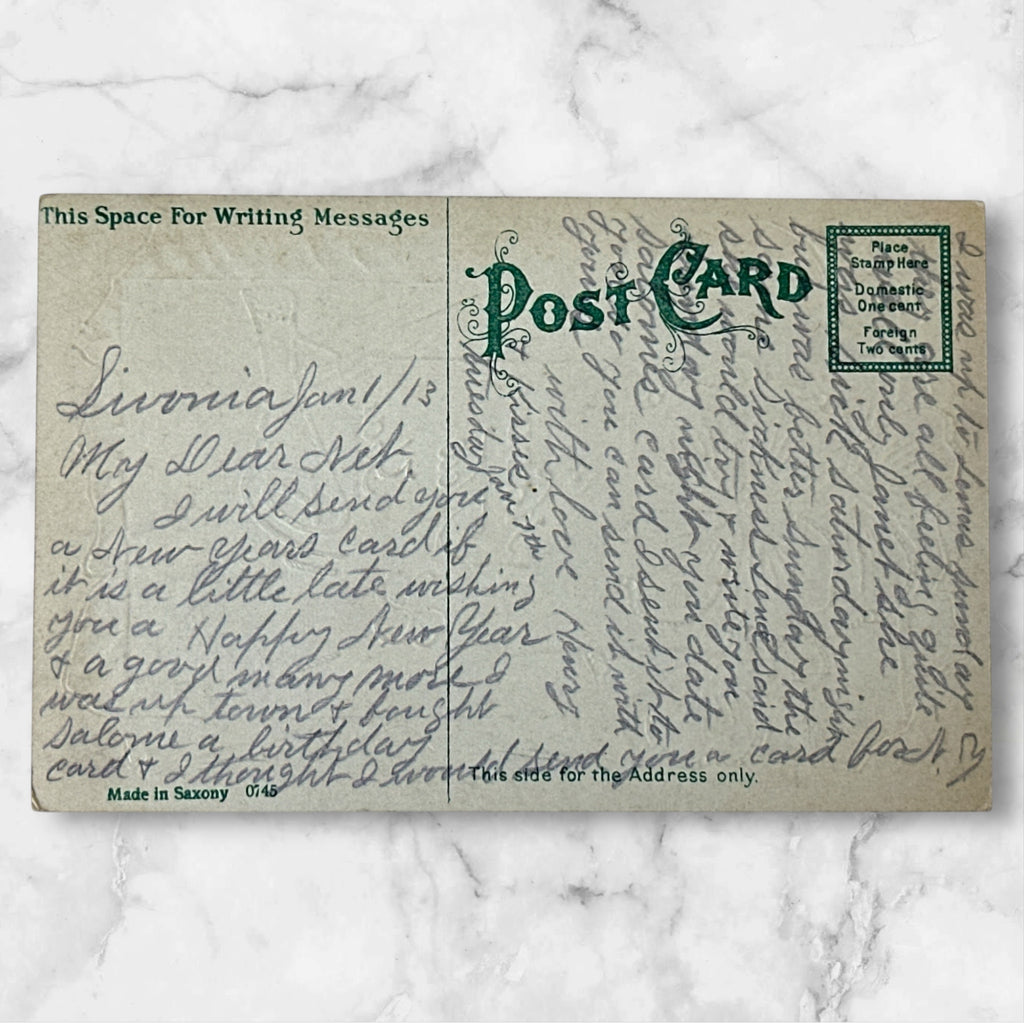 This Space For Writing Messages
POST CARD
Place
Stamp Here
Domestic
One cent
Foreign
Two cents
Livonia Jan 1/13
My Dear Net.
I will send you
a New Years Card if
it is a little late wishing
you a Happy New Year
& a good many more I
was up town & bought
Salome a birthday
card & I thought I would send you a card for N. Y.
I was up to Lomes Sunday
are all feeling quite
only Janet she
sick saturday night
but was better Sunday the
Sickness Lene said
she would try & write you
night you date
Salomes card I sent it to
you so you can send it with
yours
with love Henry
& Kisses
tuesday Jan 7th
This side for the Address only.
Made in Saxony 0745